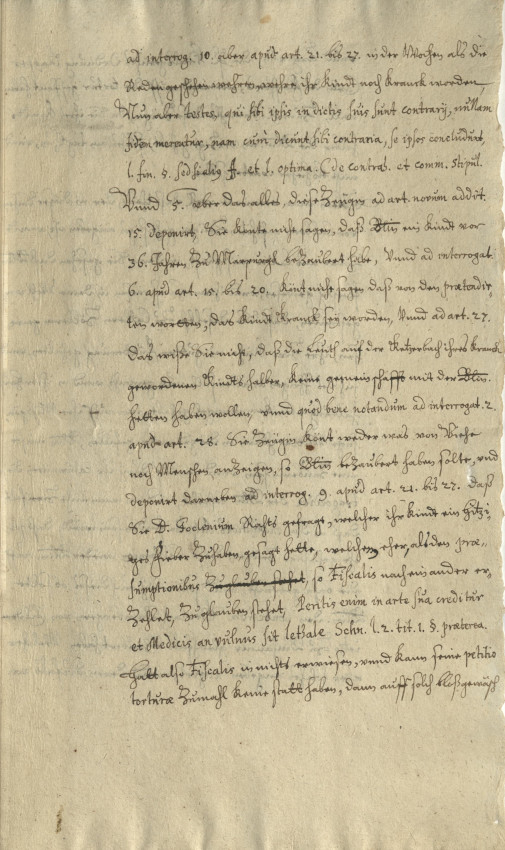 ad interrog. 10. über apud art. 21. bis 27. in der Wochen als die
Reden geschehen wehren, wehre ihr Kindt noch Kranck worden,
Nun aber testes, qui sibi ipsis in dictis suis sunt contrarij, nullam
fidem merentur, nam cum dicunt sibi contraria, se ipsos concludunt,
l. fin. §. sed si alius ff. et l. optima. C de contrah. et comm. stipul.
Vund 5. über das alles, diese Zeugin ad art. novum addit.
15. deponirt, Sie könte nicht sagen, daß Bltin ein Kindt vor
36. Jahren Zu Marpurgk bezaubert habe, Vund ad interrogat.
6. apud art. 15. bis 20. könt nicht sagen daß von den prætendir-
ten wortten, das Kindt Kranck sey worden, Vund ad art. 27.
das wiße Sie nicht, daß die Leuth auf der Ketzerbach ihres Kranck
gewordenen Kindts halber, Keine gemeinschafft mit der Bltin.
hetten haben wollen, vund quod bene notandum ad interrogat. 2.
apud art. 28. Sie Zeugin könt weder was von Viehe
noch Menschen anzeigen, so Bltin bezaubert haben solte, vnd
deponirt darneben ad interrog. 9. apud art. 21. bis 27. daß
Sie D. Goclenium Rahts gefragt, welcher ihr Kindt ein hitzi-
ges fieber Zuhaben, gesagt hette, welchem eher, als den præ-
sumptionibus Zuglauben stehet, so Fiscalis nach ein ander er-
Zehlet, Zuglauben stehet, Peritis enim in arte sua creditur
et Medicis an vulnus sit lethale Schn. l. 2. tit. 1. §. præterea.
Hatt also Fiscalis in nichts erwiesen, vund kann seine petitio
torturæ Zumahl Keine statt haben, dann auff solch bloßgewäsch